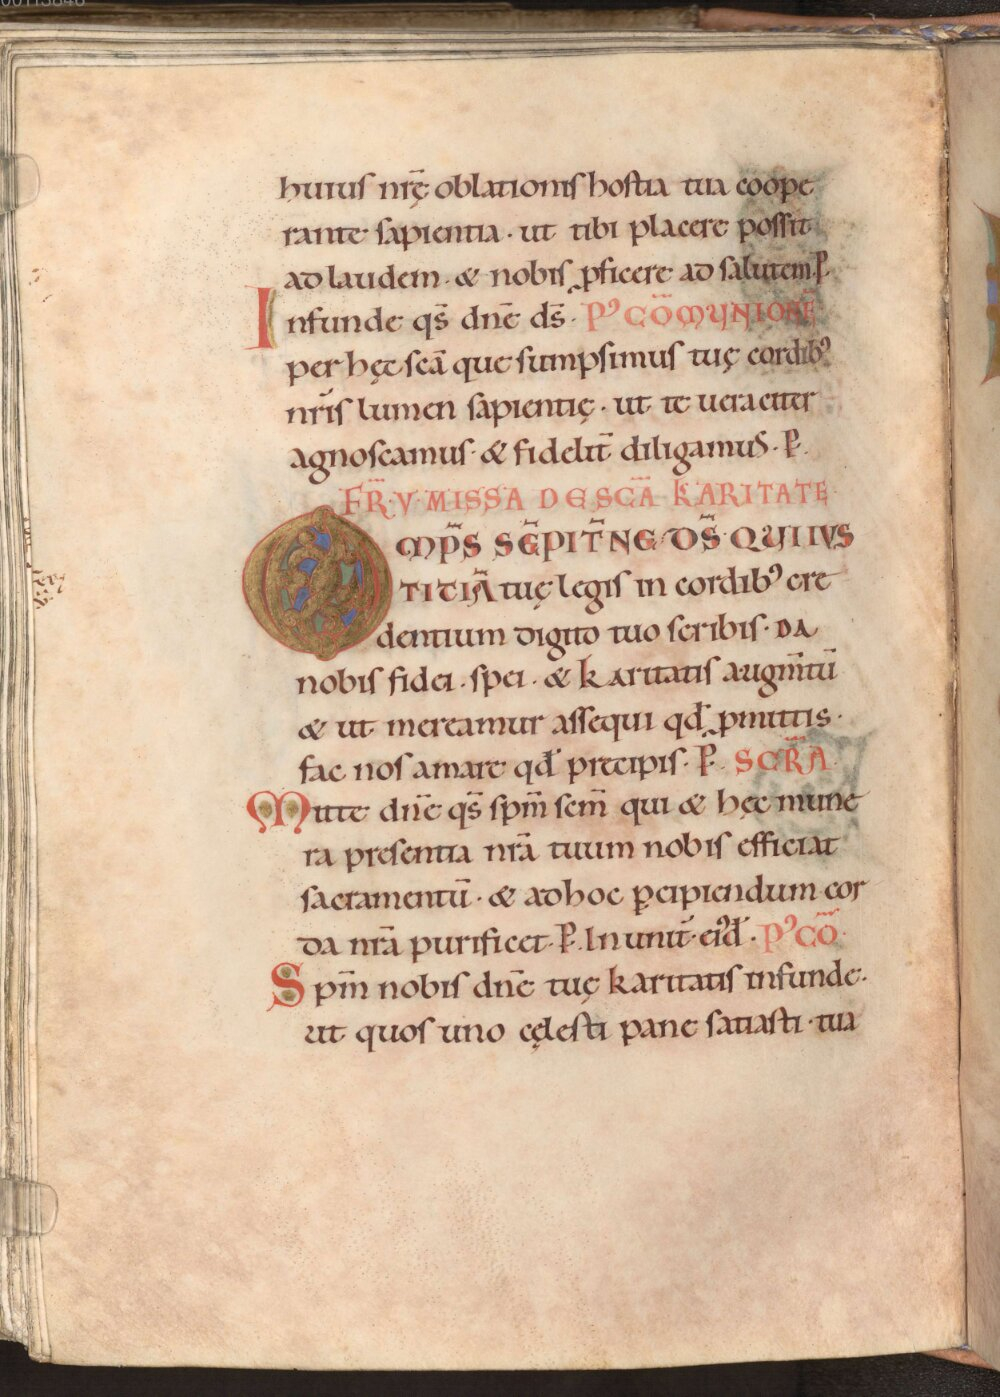 huius nr̄ę oblationis hostia tua coope
rante sapientia · ut tibi placere possit
ad laudem · & nobis ꝓficere ad salutem P̄.
Infunde qs̄ dnē ds̄ · P' CŌMUNIONĒ
per hęc scā que sumpsimus tuę cordib'
nrīs lumen sapientię · ut te ueraciter
agnoscamus · & fidelit̄ diligamus · P̄.
FR̄ V · MISSA DE SCĀ KARITATE
OMP̄S SĒPIT̄NE DS̄ QUI IUS
TITIĀ tuę legis in cordib' cre
dentium digito tuo scribis · DA
nobis fidei · spei · & karitatis augm̄tū
& ut mereamur assequi qđ ꝓmittis ·
fac nos amare qđ precipis · P̄. SCR̄A
Mitte dnē qs̄ spm̄ scm̄ qui & hęc mune
ra presentia nrā tuum nobis efficiat
sacramentū · & ad hoc ꝑcipiendum cor
da nrā purificet · P̄. In unit̄ · ei'đ · P' CŌ ·
Spm̄ nobis dnē tuę karitatis infunde ·
ut quos uno cęlesti pane satiasti · tua